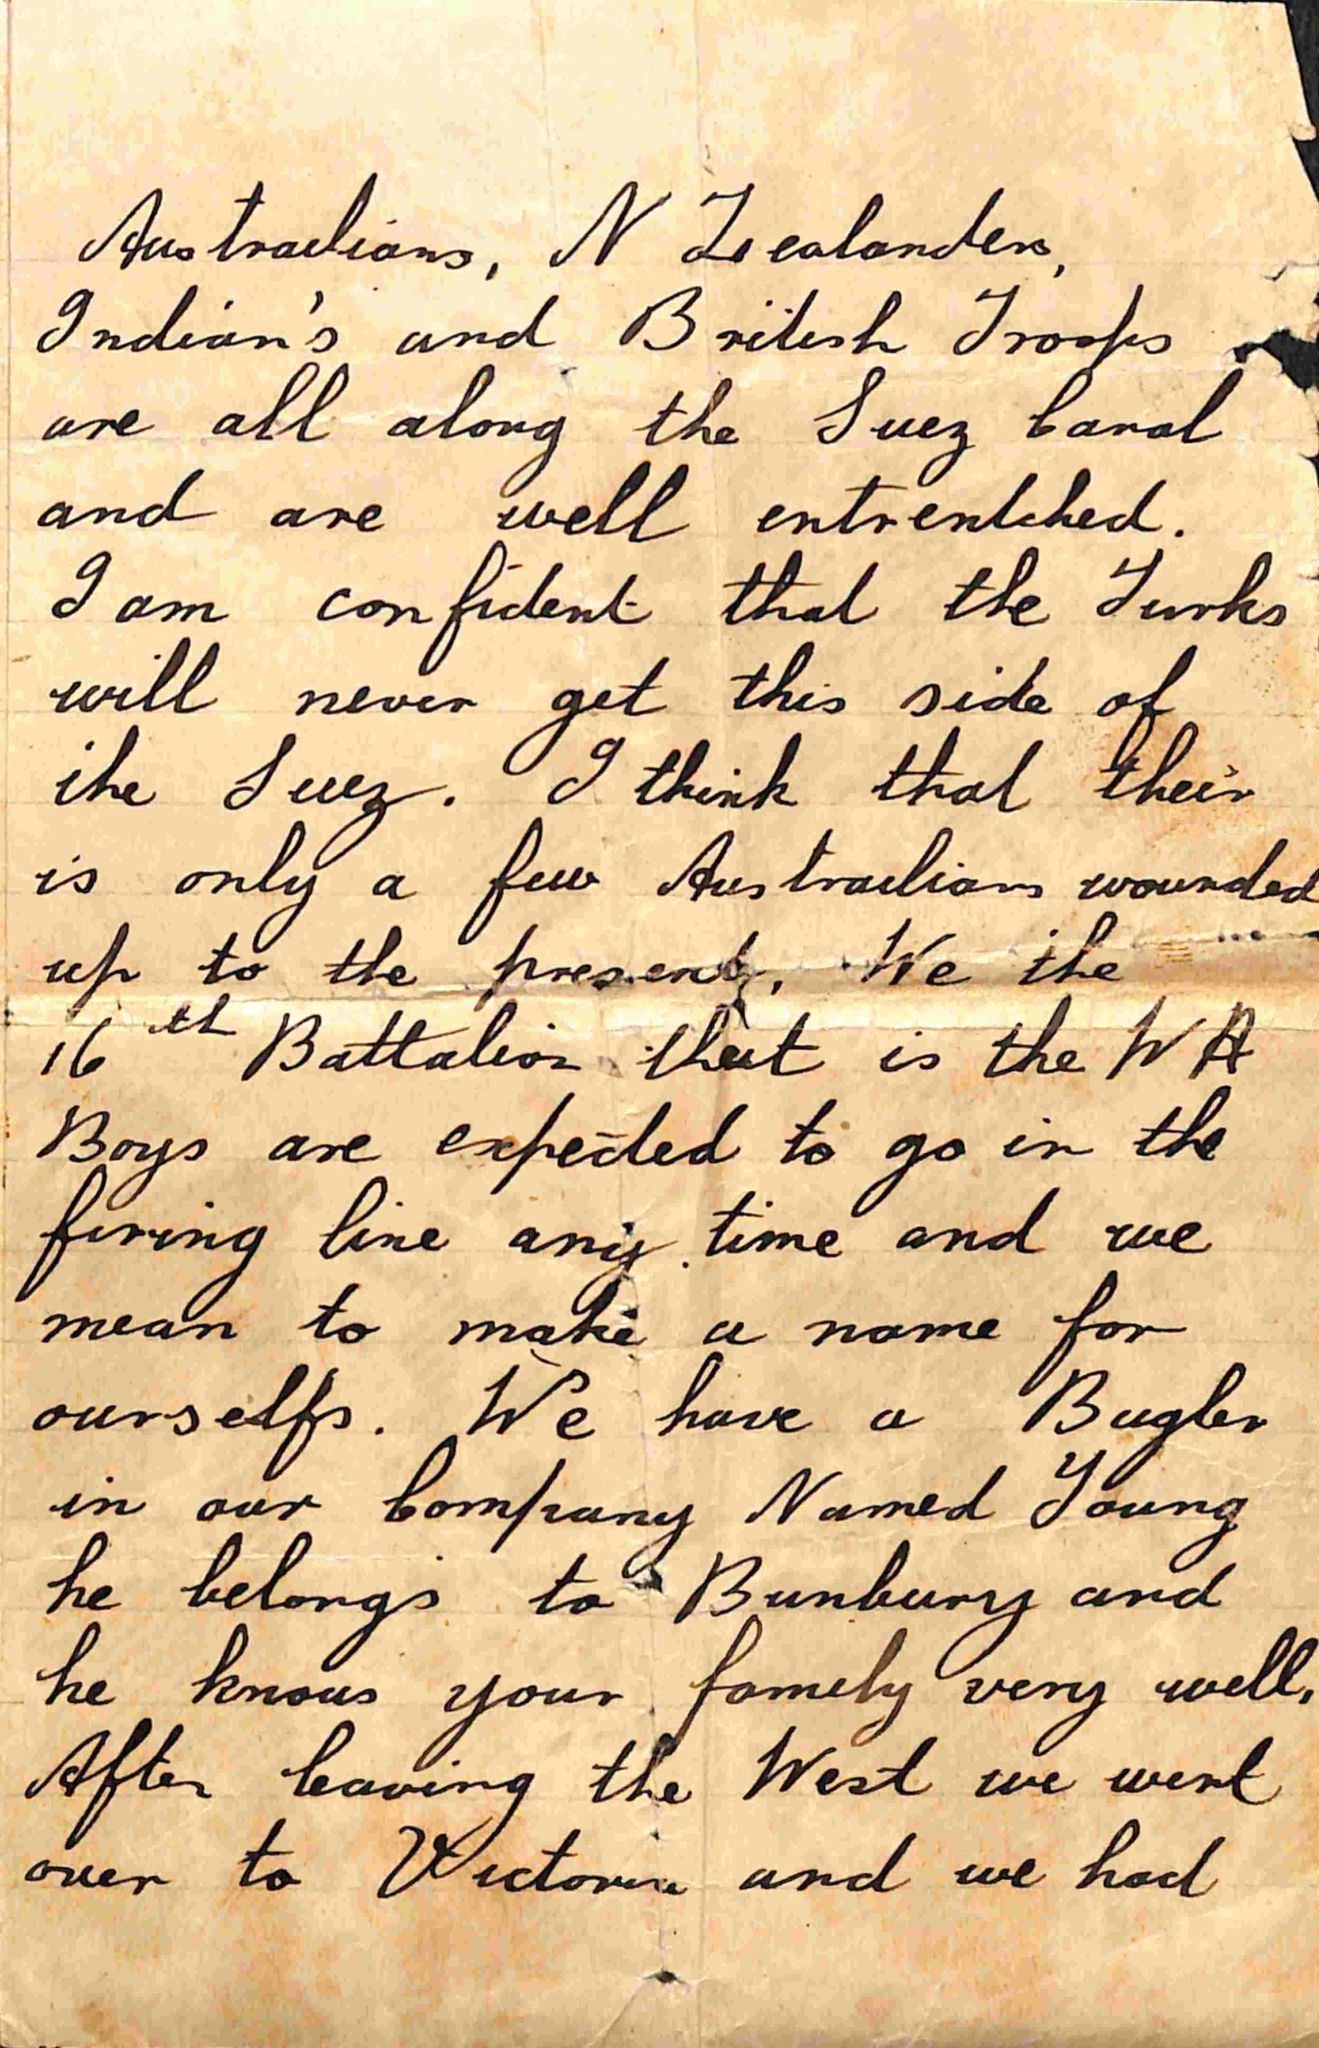 Australians, N Zealanders,
Indian's and British Troops
are all along the Suez Canal
and are well entrentched.
I am confident that the Turks
will never get this side of
the Suez. I think that their
is only a few Australians wounded
up to the present. We the
16th Battalion that is the W A
Boys are expected to go in the
firing line any time and we
mean to make a name for
ourselfs. We have a Bugler
in our Company Named Young
he belongs to Bunbury and
he knows your famely very well.
After leaving the West we went
over to Victoria and we had